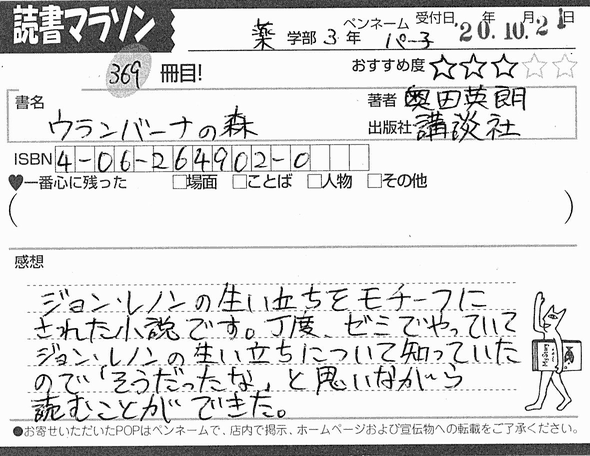 読書マラソン
薬 学部 3 年 ペンネーム パー子 受付日 '20年.10月.21日
369 冊目! おすすめ度 ★★★☆☆
書名 ウランバーナの森
著者 奥田英朗
出版社 講談社
ISBN 4-06-264902-0
♥一番心に残った □場面 □ことば □人物 □その他
( )
感想
ジョン・レノンの生い立ちをモチーフに
された小説です。丁度、ゼミでやっていて
ジョン・レノンの生い立ちについて知っていた
ので「そうだったな」と思いながら
読むことができた。
●お寄せいただいたPOPはペンネームで、店内で掲示、ホームページおよび宣伝物への転載をご了承ください。